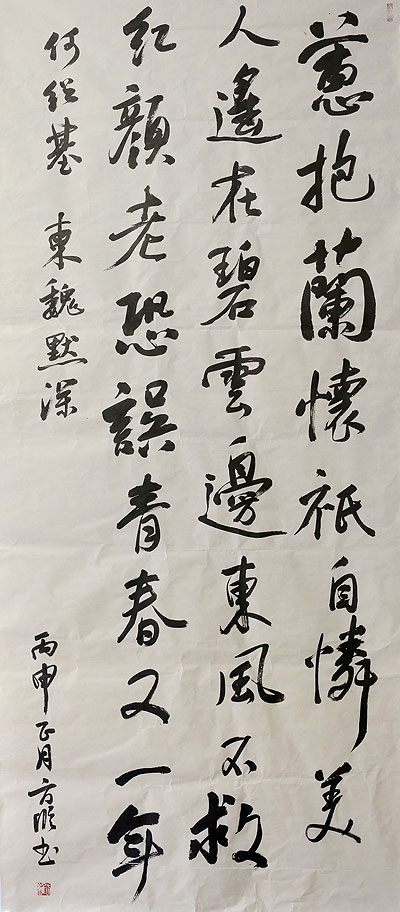 蕙抱蘭懷祇自憐美
人遙在碧雲邊東風不救
紅顏老恐誤青春又一年
何紹基 東魏默深
丙申正月方書